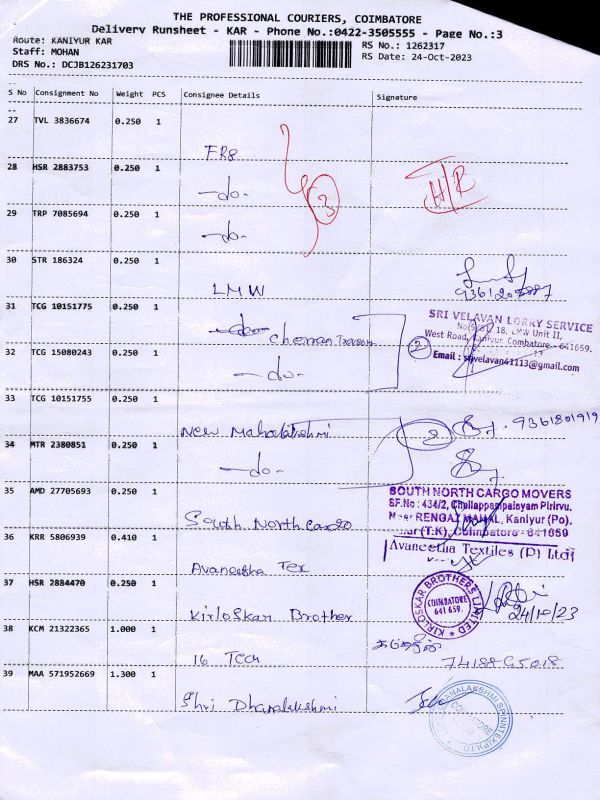 THE PROFESSIONAL COURIERS, COIMBATORE
Delivery Runsheet - KAR - Phone No.:0422-3505555 - Page No.:3
Route: KANIYUR KAR
RS No.: 1262317
Staff: MOHAN
RS Date: 24-Oct-2023
DRS No.: DCJB126231703
S No Consignment No Weight PCS Consignee Details Signature
27 TVL 3836674 0.250 1
28 HSR 2883753 0.250 1
-do-
3
H/R
29 TRP 7085694 0.250 1
-do-
30 STR 186324 0.250 1
LMW
31 TCG 10151775 0.250 1
-do- Cheran
SRI VELAVAN LORRY SERVICE
LMW Unit II,
West Road, Kaniyur, Coimbatore - 641659.
2
Email : srivelavan41113@gmail.com
32 TCG 15080243 0.250 1
-do-
33 TCG 10151755 0.250 1
New Mahalakshmi
2
9361801919
34 MTR 2380851 0.250 1
-do-
35 AMD 27705693 0.250 1
South North Cargo
SOUTH NORTH CARGO MOVERS
SF.No : 434/2, Chollappampalayam Pirivu.
Near RENGAA MAHAL, Kaniyur (Po).
(T.K), Coimbatore - 641659
36 KRR 5806939 0.410 1
Avaneetha Tex
Avaneetha Textiles (P) Ltd
37 HSR 2884470 0.250 1
Kirloskar Brother
KIRLOSKAR BROTHERS LIMITED
COIMBATORE
641 659.
24/10/23
38 KCM 21322365 1.000 1
16 Tech
39 MAA 571952669 1.300 1
Shri Dhanalakshmi